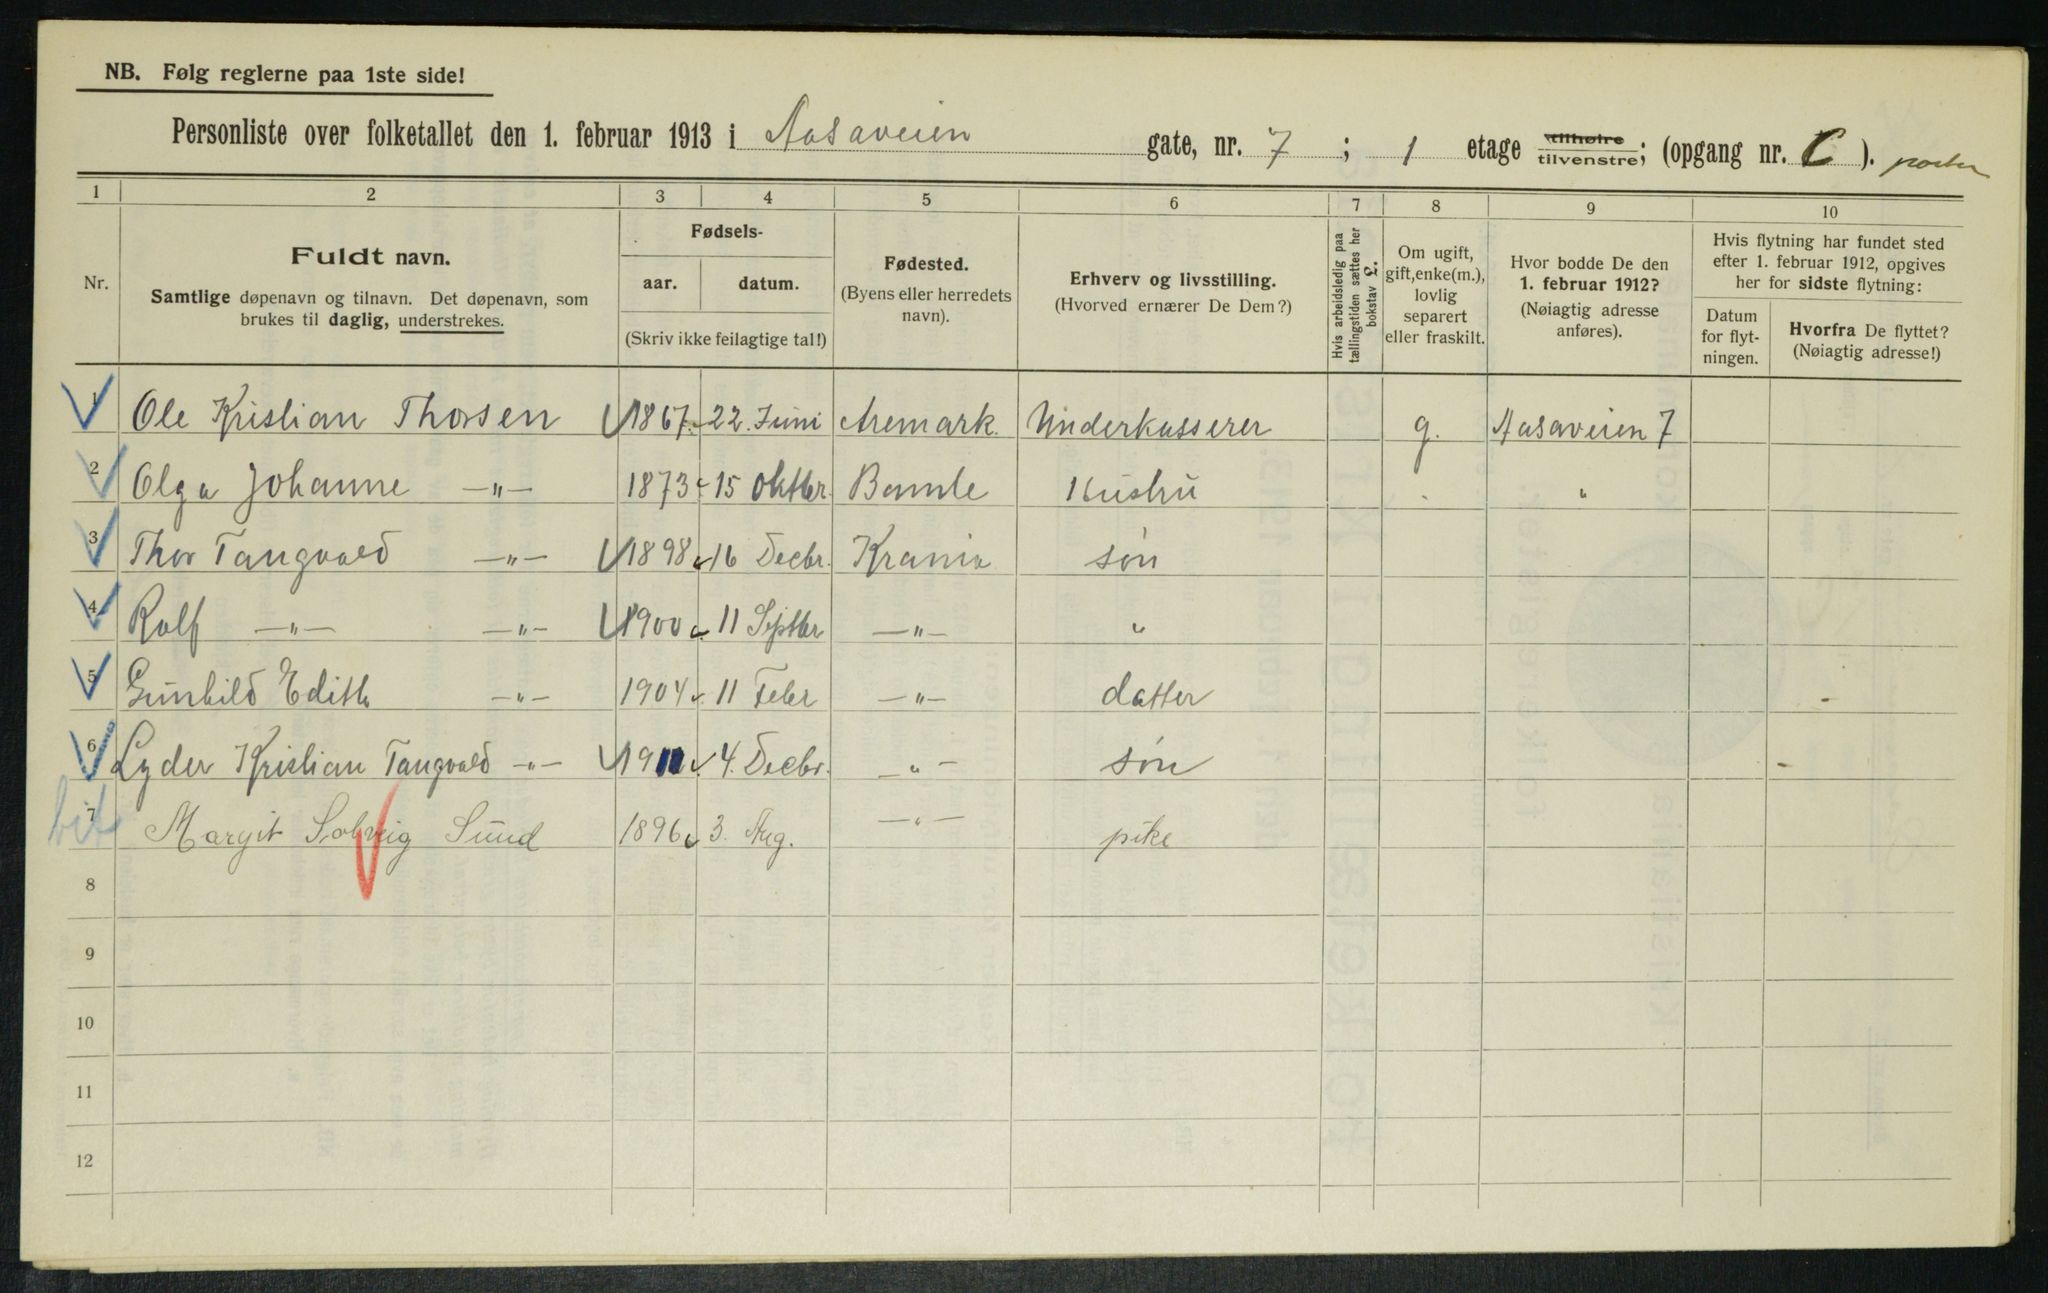 NB. Følg reglerne paa 1ste side!
Personliste over folketallet den 1. februar 1913 i Aasaveien gate, nr. 7 ; 1 etage tilhøire tilvenstre; (opgang nr. C ).
1 2 3 4 5 6 7 8 9 10
Nr.
Fuldt navn.
Samtlige døpenavn og tilnavn. Det døpenavn, som
brukes til daglig, understrekes.
Fødsels-
aar. datum.
(Skriv ikke feilagtige tal!)
Fødested.
(Byens eller herredets
navn).
Erhverv og livsstilling.
(Hvorved ernærer De Dem?)
Hvis arbeidsledig paa
tællingstiden sættes her
bokstav L.
Om ugift,
gift, enke(m.),
lovlig
separert
eller fraskilt.
Hvor bodde De den
1. februar 1912?
(Nøiagtig adresse
anføres).
Hvis flytning har fundet sted
efter 1. februar 1912, opgives
her for sidste flytning:
Datum
for flyt-
ningen.
Hvorfra De flyttet?
(Nøiagtig adresse!)
1 Ole Kristian Thorsen 1867 22. Juni Aremark. Underkasserer g. Aasaveien 7
2 Olga Johanne —"— 1873 15 Oktbr. Bamle Hustru "
3 Thor Tangvald —"— 1898 16 Decbr. Krania søn
4 Rolf —"— —"— 1900 11 Septbr —"— "
5 Gunhild Edith —"— 1904 11 Febr —"— datter
6 Lyder Kristian Tangvald —"— 1911 4. Decbr. —"— søn
7 Margit Solveig Sund 1896 3. Aug. —"— pike
8
9
10
11
12